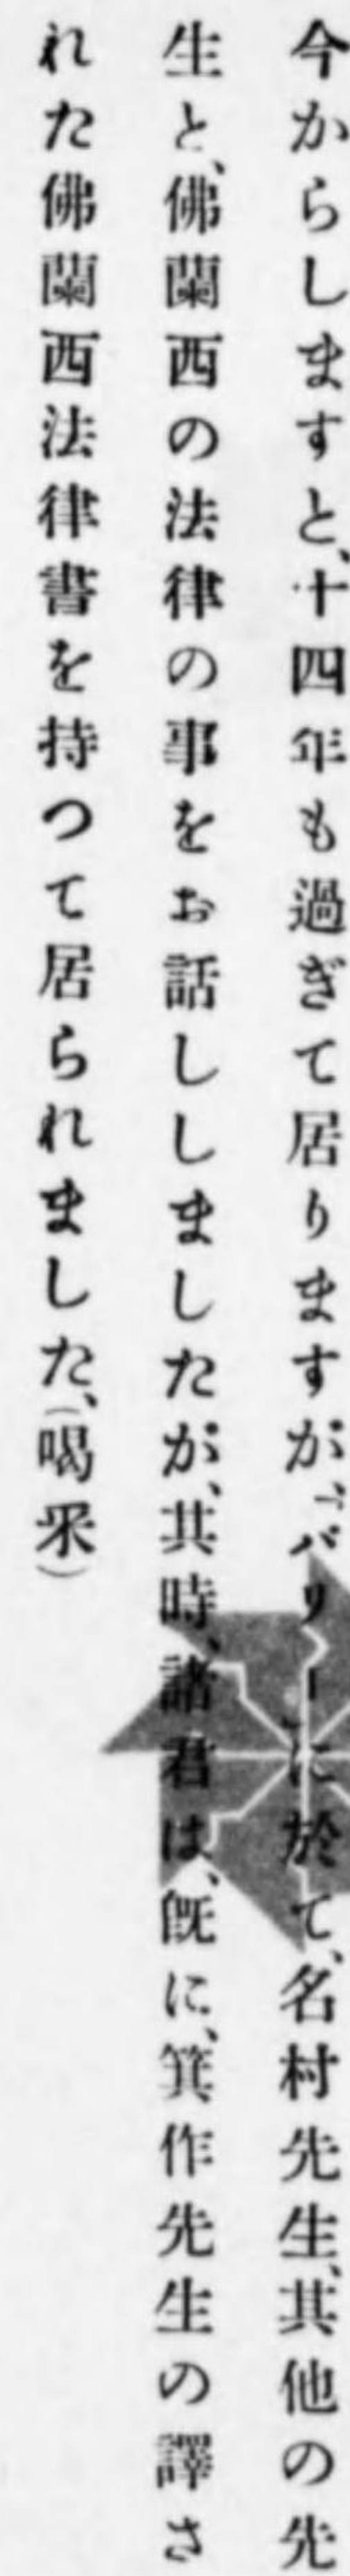 今からしますと、十四年も過ぎて居りますが、「バリーに於て、名村先生、其他の先
生と、佛蘭西の法律の事をお話ししましたが、其時、諸君は、既に、箕作先生の譯さ
れた佛蘭西法律書を持つて居られました、(喝釆)